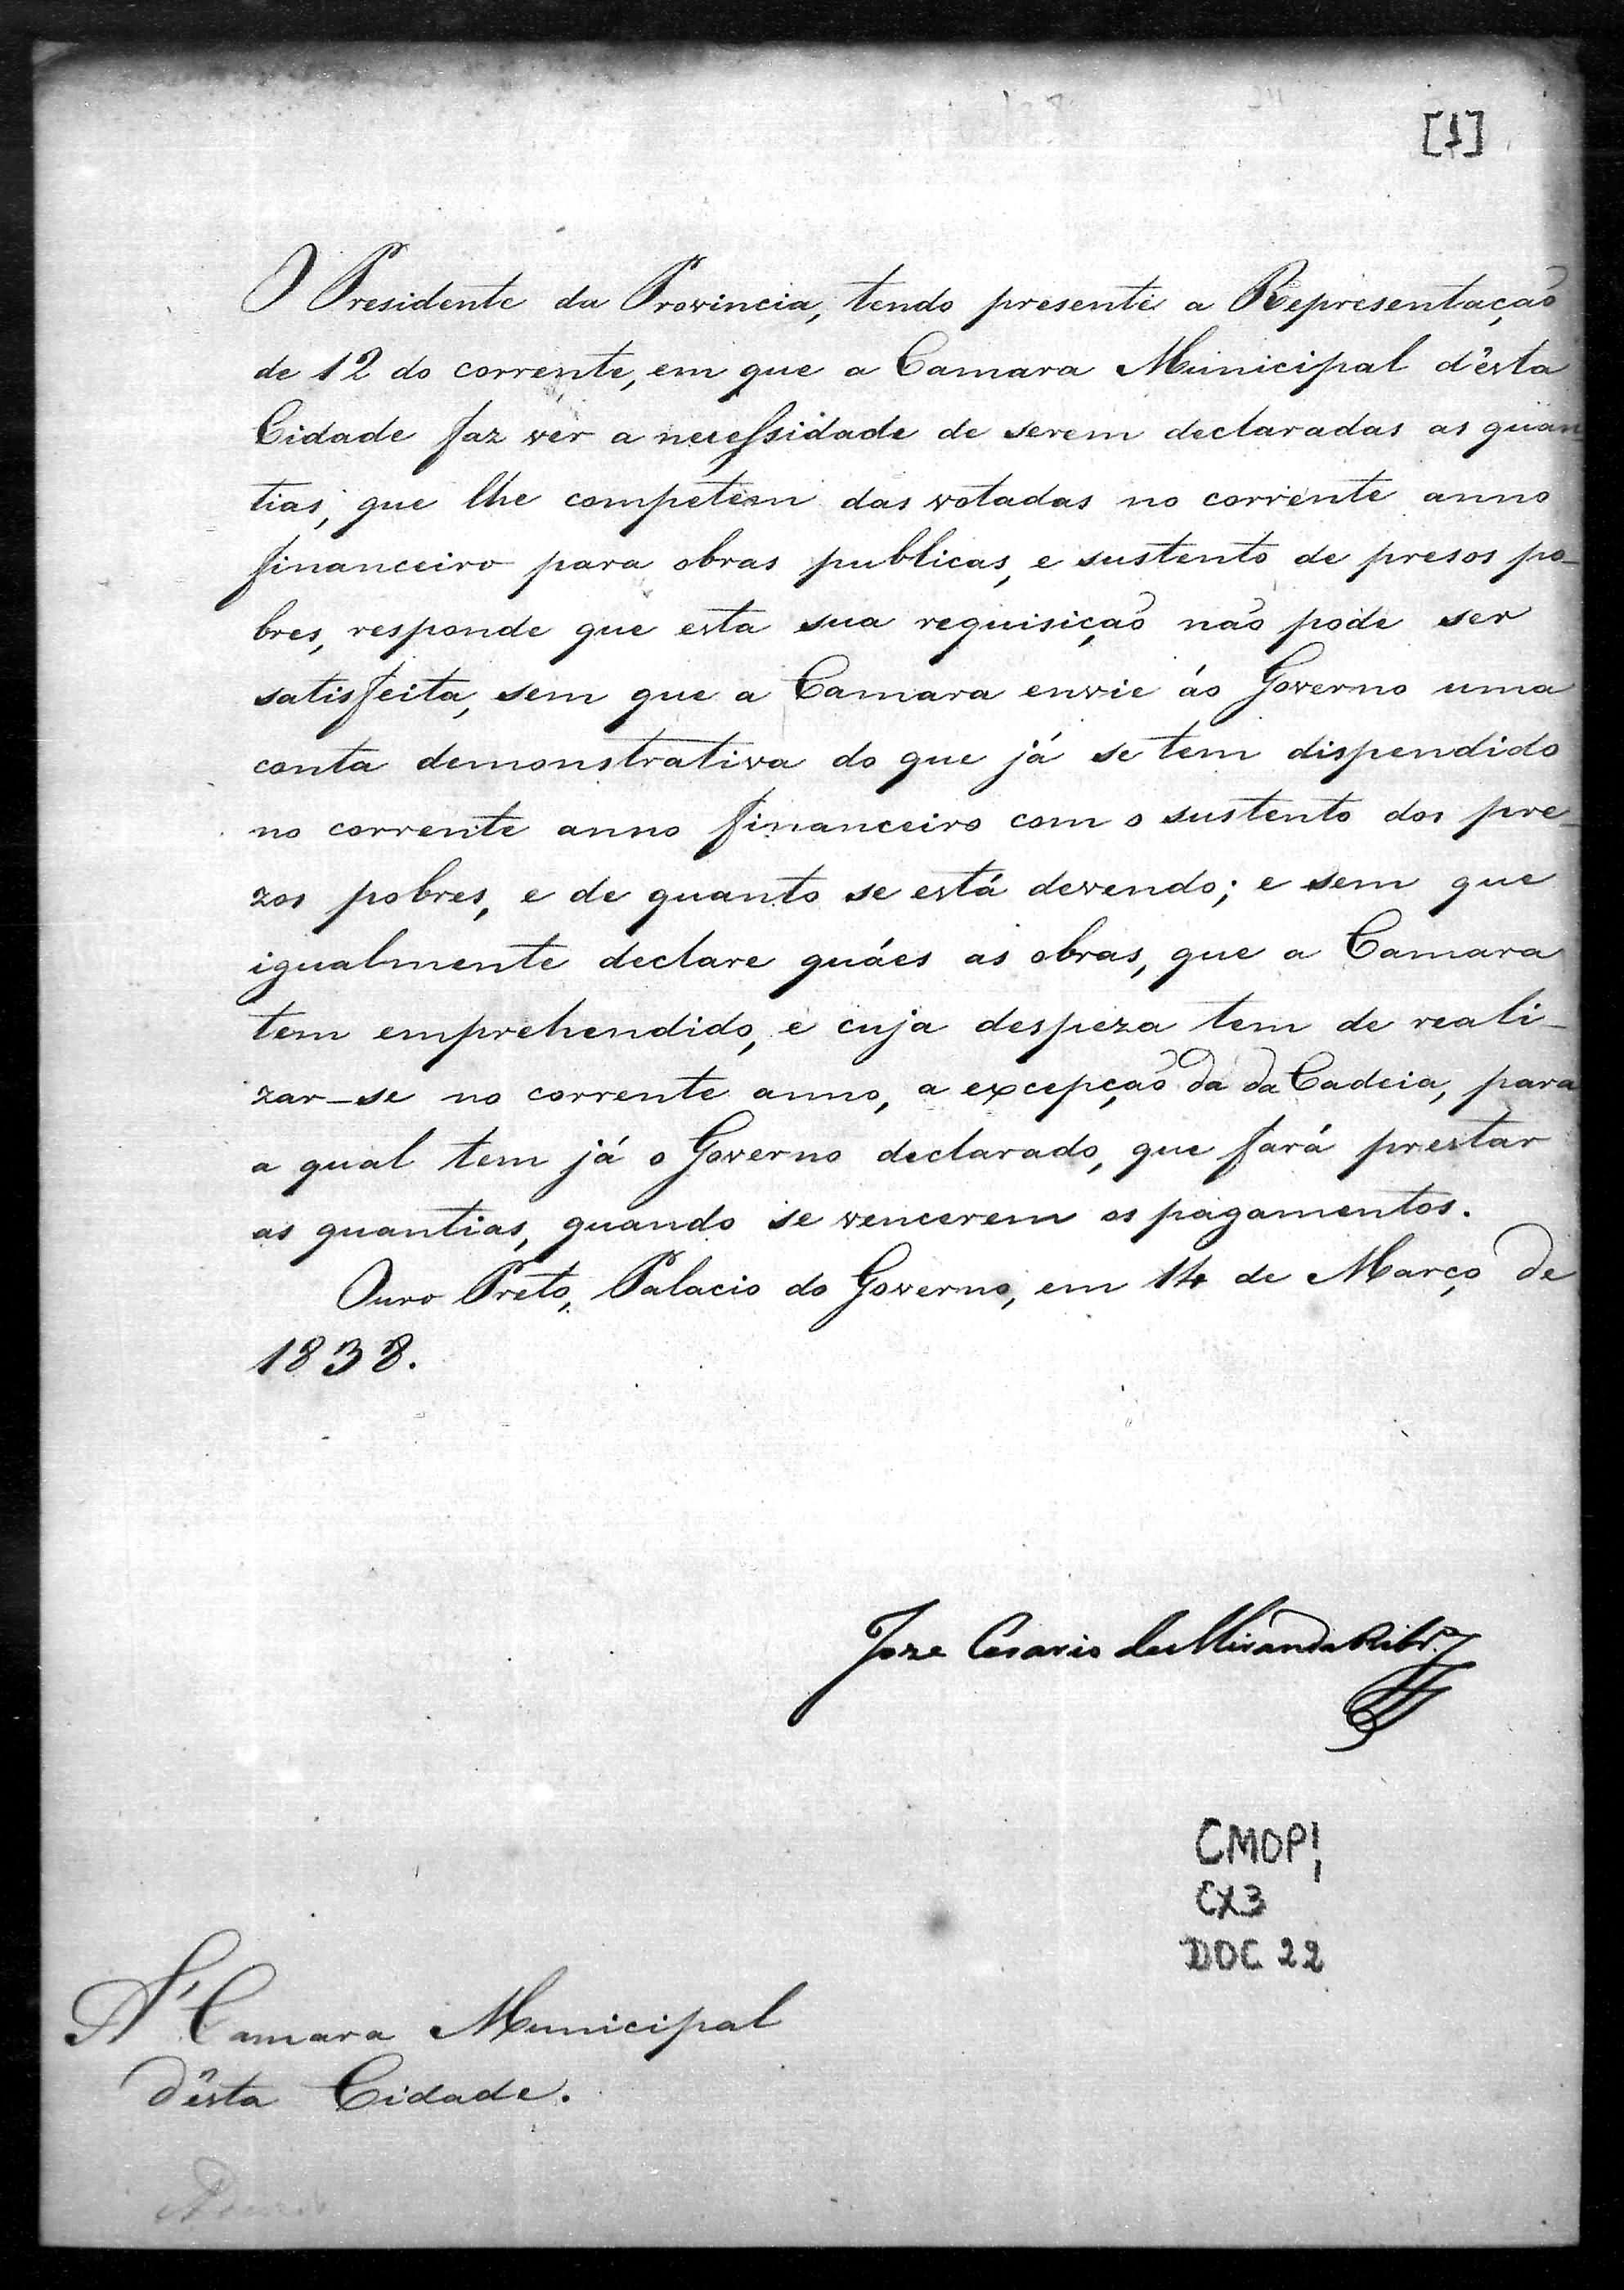 [1]
O Presidente da Provincia, tendo presente a Representação
de 12 do corrente, em que a Camara Municipal d'ésta
Cidade faz vêr a necessidade de serem declaradas as quan
tias, que lhe competem das votadas no corrente anno
financeiro para obras publicas, e sustento de presos po-
bres, responde que esta sua requisição não pode ser
satisfeita, sem que a Camara envie áo Governo uma
conta demonstrativa do que já se tem dispendido
no corrente anno financeiro com o sustento dos pre-
zos pobres, e de quanto se está devendo; e sem que
igualmente declare quáes as obras, que a Camara
tem emprehendido, e cuja despeza tem de reali-
zar-se no corrente anno, a excepção da da Cadeia, para
a qual tem já o Governo declarado, que fará prestar
as quantias, quando se vencerem os pagamentos.
Ouro Preto, Palacio do Governo, em 14 de Março de
1838.
Joze Cesario de Miranda Ribr.º
CMOP!
CX3
DOC 22
A' Camara Municipal
d'ésta Cidade.